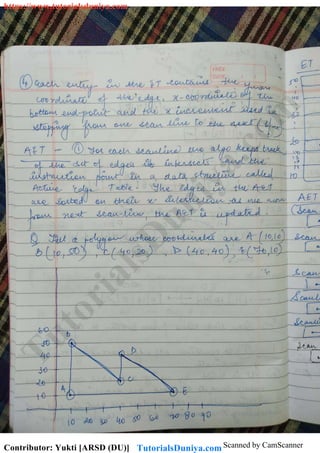 https://www.tutorialsduniya.com
④ Each entry in the ET contains the ymax
coordinate of the edge, x-coordinate of the
bottom end-point and the x increment used in
stepping from one scan line to the next
AET - ① For each scanline the algo keeps track
of the set of edges it intersects and the
intersection point in a data structure called
Active Edge Table. The edges in the AET
are sorted on their x intersection as we move
from next scan-line, the AET is updated.
Q Fill a polygon whose coordinates are A (10,10)
B (10,50), C (40,20), D (40,40), E (70,10)
60
50
40
30
20
10
B
D
C
A
E
10 20 30 40 50 60 70 80 90
ET
50
20
10
AET
Scan
Scan
Scan
Scanli
Scanli
Scan
TutorialsDuniya.com
Contributor: Yukti [ARSD (DU)] TutorialsDuniya.com Scanned by CamScanner